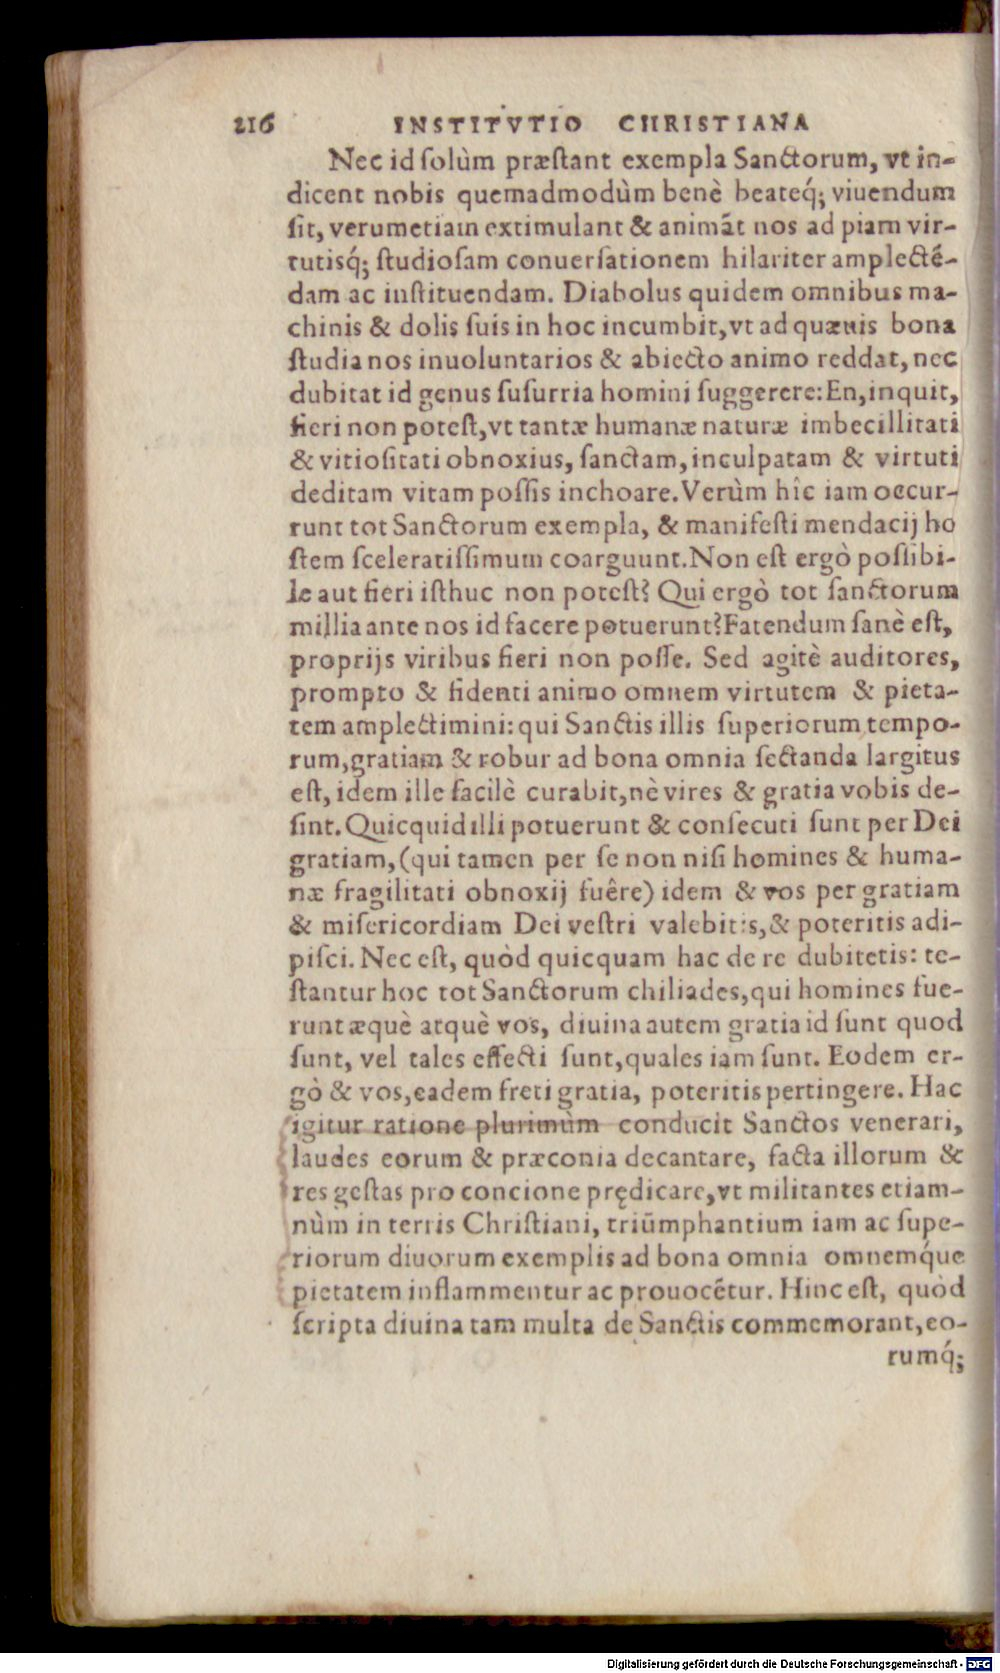 216 INSTITVTIO CHRISTIANA
Nec id ſolùm præſtant exempla Sanctorum, vt in-
dicent nobis quemadmodùm benè beateq́; viuendum
ſit, verumetiam extimulant & animãt nos ad piam vir-
tutisq́; ſtudioſam conuerſationem hilariter amplectẽ-
dam ac inſtituendam. Diabolus quidem omnibus ma-
chinis & dolis ſuis in hoc incumbit, vt ad quæuis bona
ſtudia nos inuoluntarios & abiecto animo reddat, nec
dubitat id genus ſuſurria homini ſuggerere: En, inquit,
fieri non poteſt, vt tantæ humanæ naturæ imbecillitati
& vitioſitati obnoxius, ſanctam, inculpatam & virtuti
deditam vitam poſſis inchoare. Verùm hîc iam occur-
runt tot Sanctorum exempla, & manifeſti mendacij ho
ſtem ſceleratiſſimum coarguunt. Non eſt ergò poſſibi-
le aut fieri iſthuc non poteſt? Qui ergò tot ſanctorum
millia ante nos id facere potuerunt? Fatendum ſanè eſt,
proprijs viribus fieri non poſſe. Sed agitè auditores,
prompto & fidenti animo omnem virtutem & pieta-
tem amplectimini: qui Sanctis illis ſuperiorum tempo-
rum, gratiam & robur ad bona omnia ſectanda largitus
eſt, idem ille facilè curabit, nè vires & gratia vobis de-
ſint. Quicquid illi potuerunt & conſecuti ſunt per Dei
gratiam, (qui tamen per ſe non niſi homines & huma-
næ fragilitati obnoxij fuêre) idem & vos per gratiam
& miſericordiam Dei veſtri valebitis, & poteritis adi-
piſci. Nec eſt, quòd quicquam hac de re dubitetis: te-
ſtantur hoc tot Sanctorum chiliades, qui homines fue-
runt æquè atquè vos, diuina autem gratia id ſunt quod
ſunt, vel tales effecti ſunt, quales iam ſunt. Eodem er-
gò & vos, eadem freti gratia, poteritis pertingere. Hac
igitur ratione plurimùm conducit Sanctos venerari,
laudes eorum & præconia decantare, facta illorum &
res geſtas pro concione prędicare, vt militantes etiam-
nùm in terris Chriſtiani, triũmphantium iam ac ſupe-
riorum diuorum exemplis ad bona omnia omnemq́ue
pietatem inflammentur ac prouocẽtur. Hinc eſt, quòd
ſcripta diuina tam multa de Sanctis commemorant, eo-
rumq́;
Digitalisierung gefördert durch die Deutsche Forschungsgemeinschaft - DFG